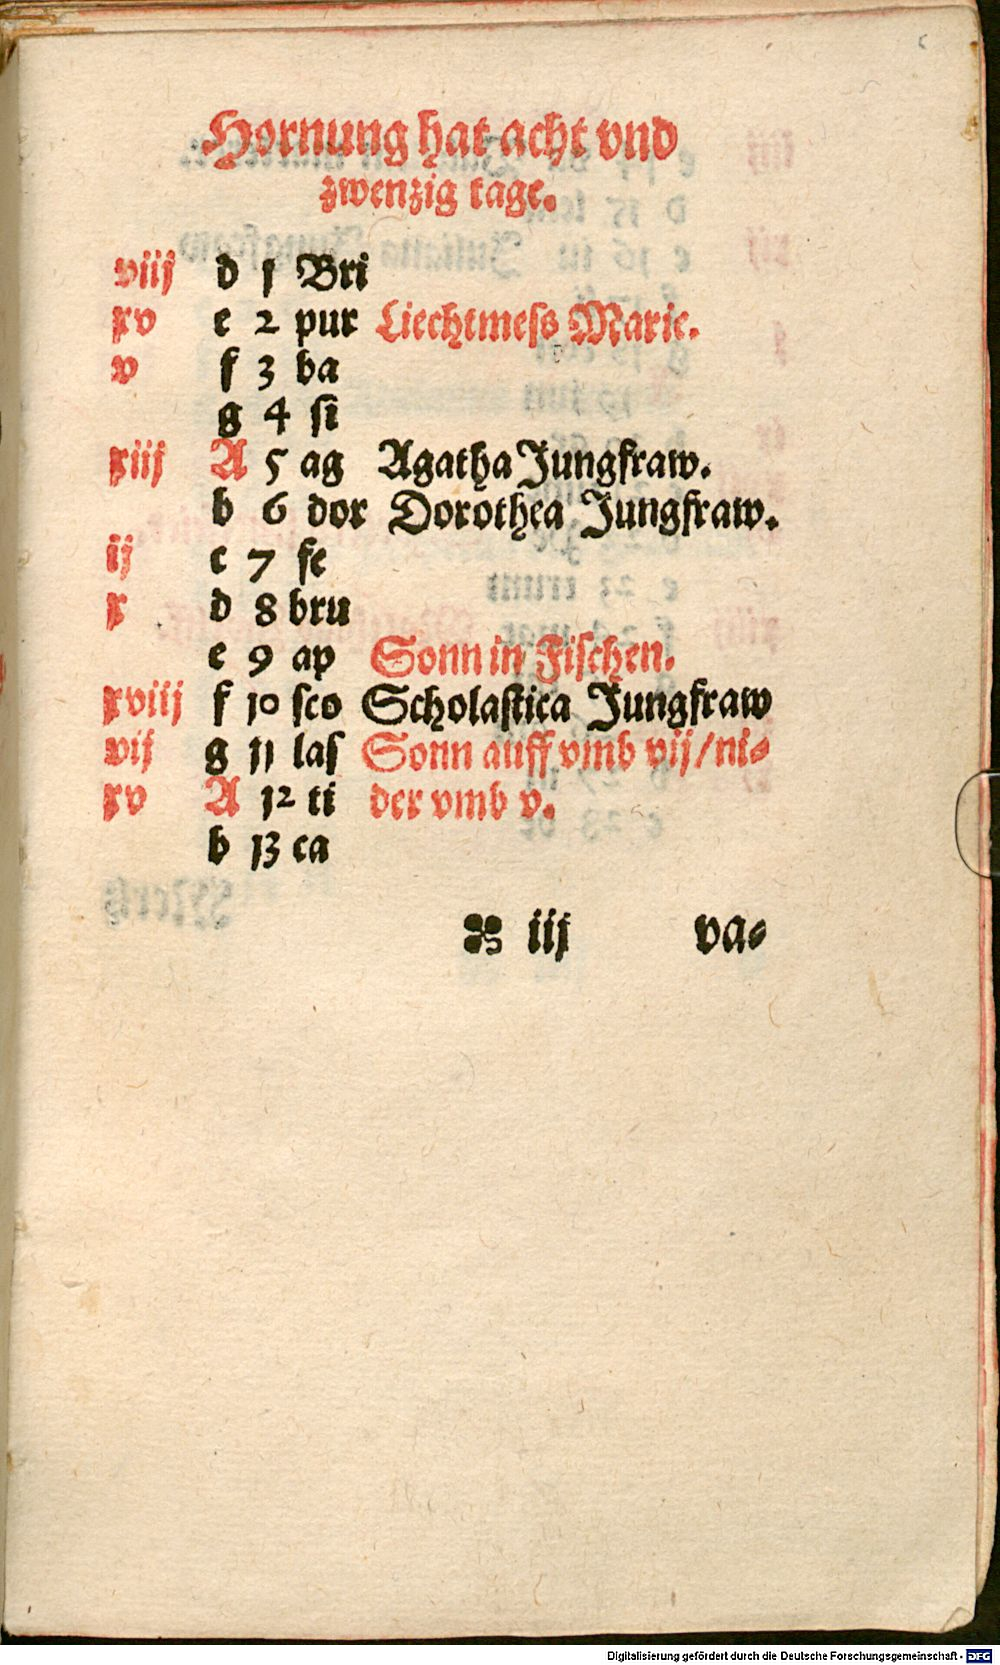 Hornung hat acht vnd
zwenzig tage.
viij d 1 Bri
xv e 2 pur Liechtmess Marie.
v f 3 ba
g 4 si
xiij A 5 ag Agatha Jungfraw.
b 6 dor Dorothea Jungfraw.
ij c 7 fe
x d 8 bru
e 9 ap Sonn in Fischen.
xviij f 10 sco Scholastica Jungfraw
vij g 11 las Sonn auff vmb vij/ni-
xv A 12 ti der vmb v.
b 13 ca
✤ iij va-
Digitalisierung gefördert durch die Deutsche Forschungsgemeinschaft - DFG